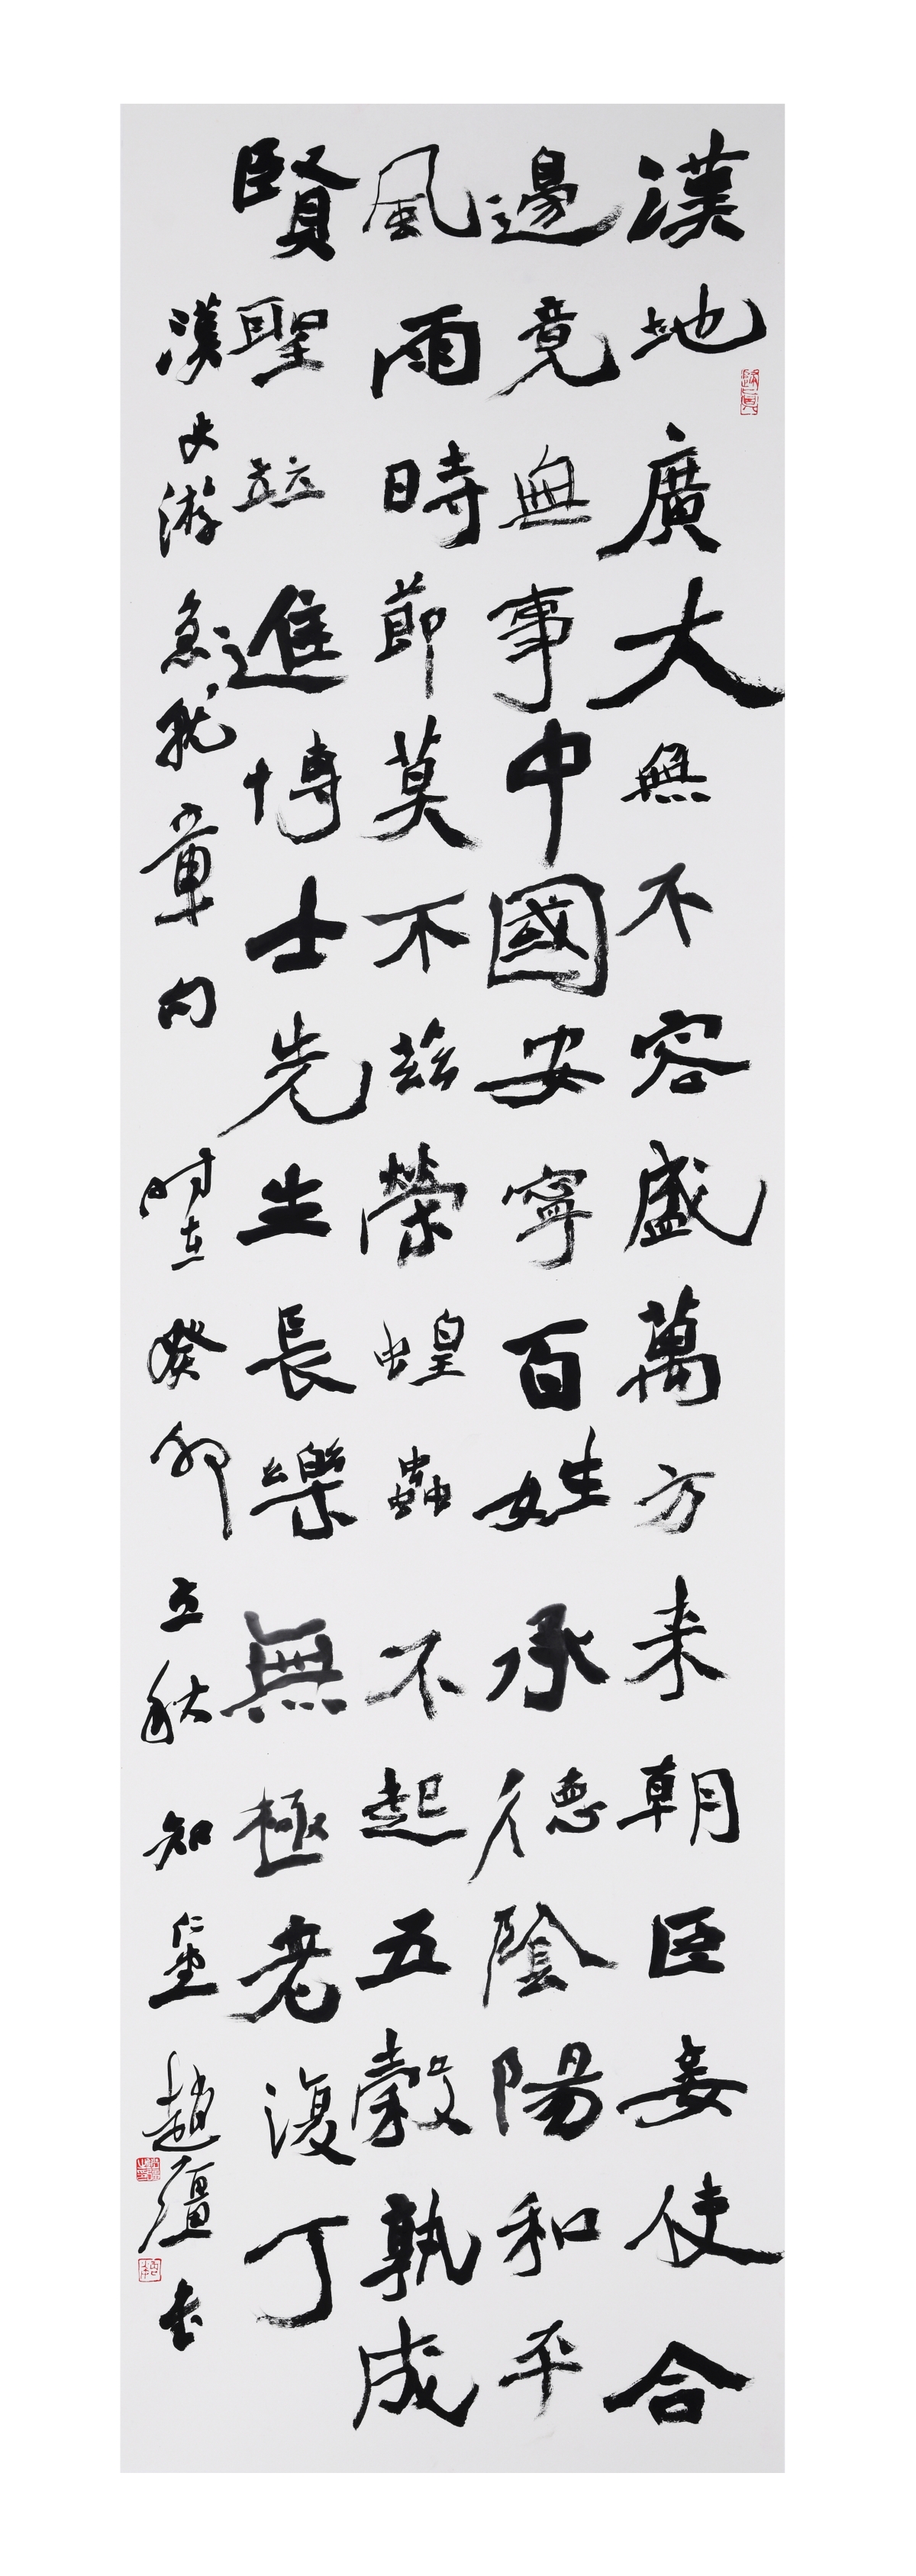 漢地廣大無不容盛萬方來朝臣妾使合
邊竟無事中國安寧百姓承德陰陽和平
風雨時節莫不茲榮蝗蟲不起五穀孰成
賢聖竝進博士先生長樂無極老復丁
漢史游急就章句 時在癸卯立秋知仁堂趙書